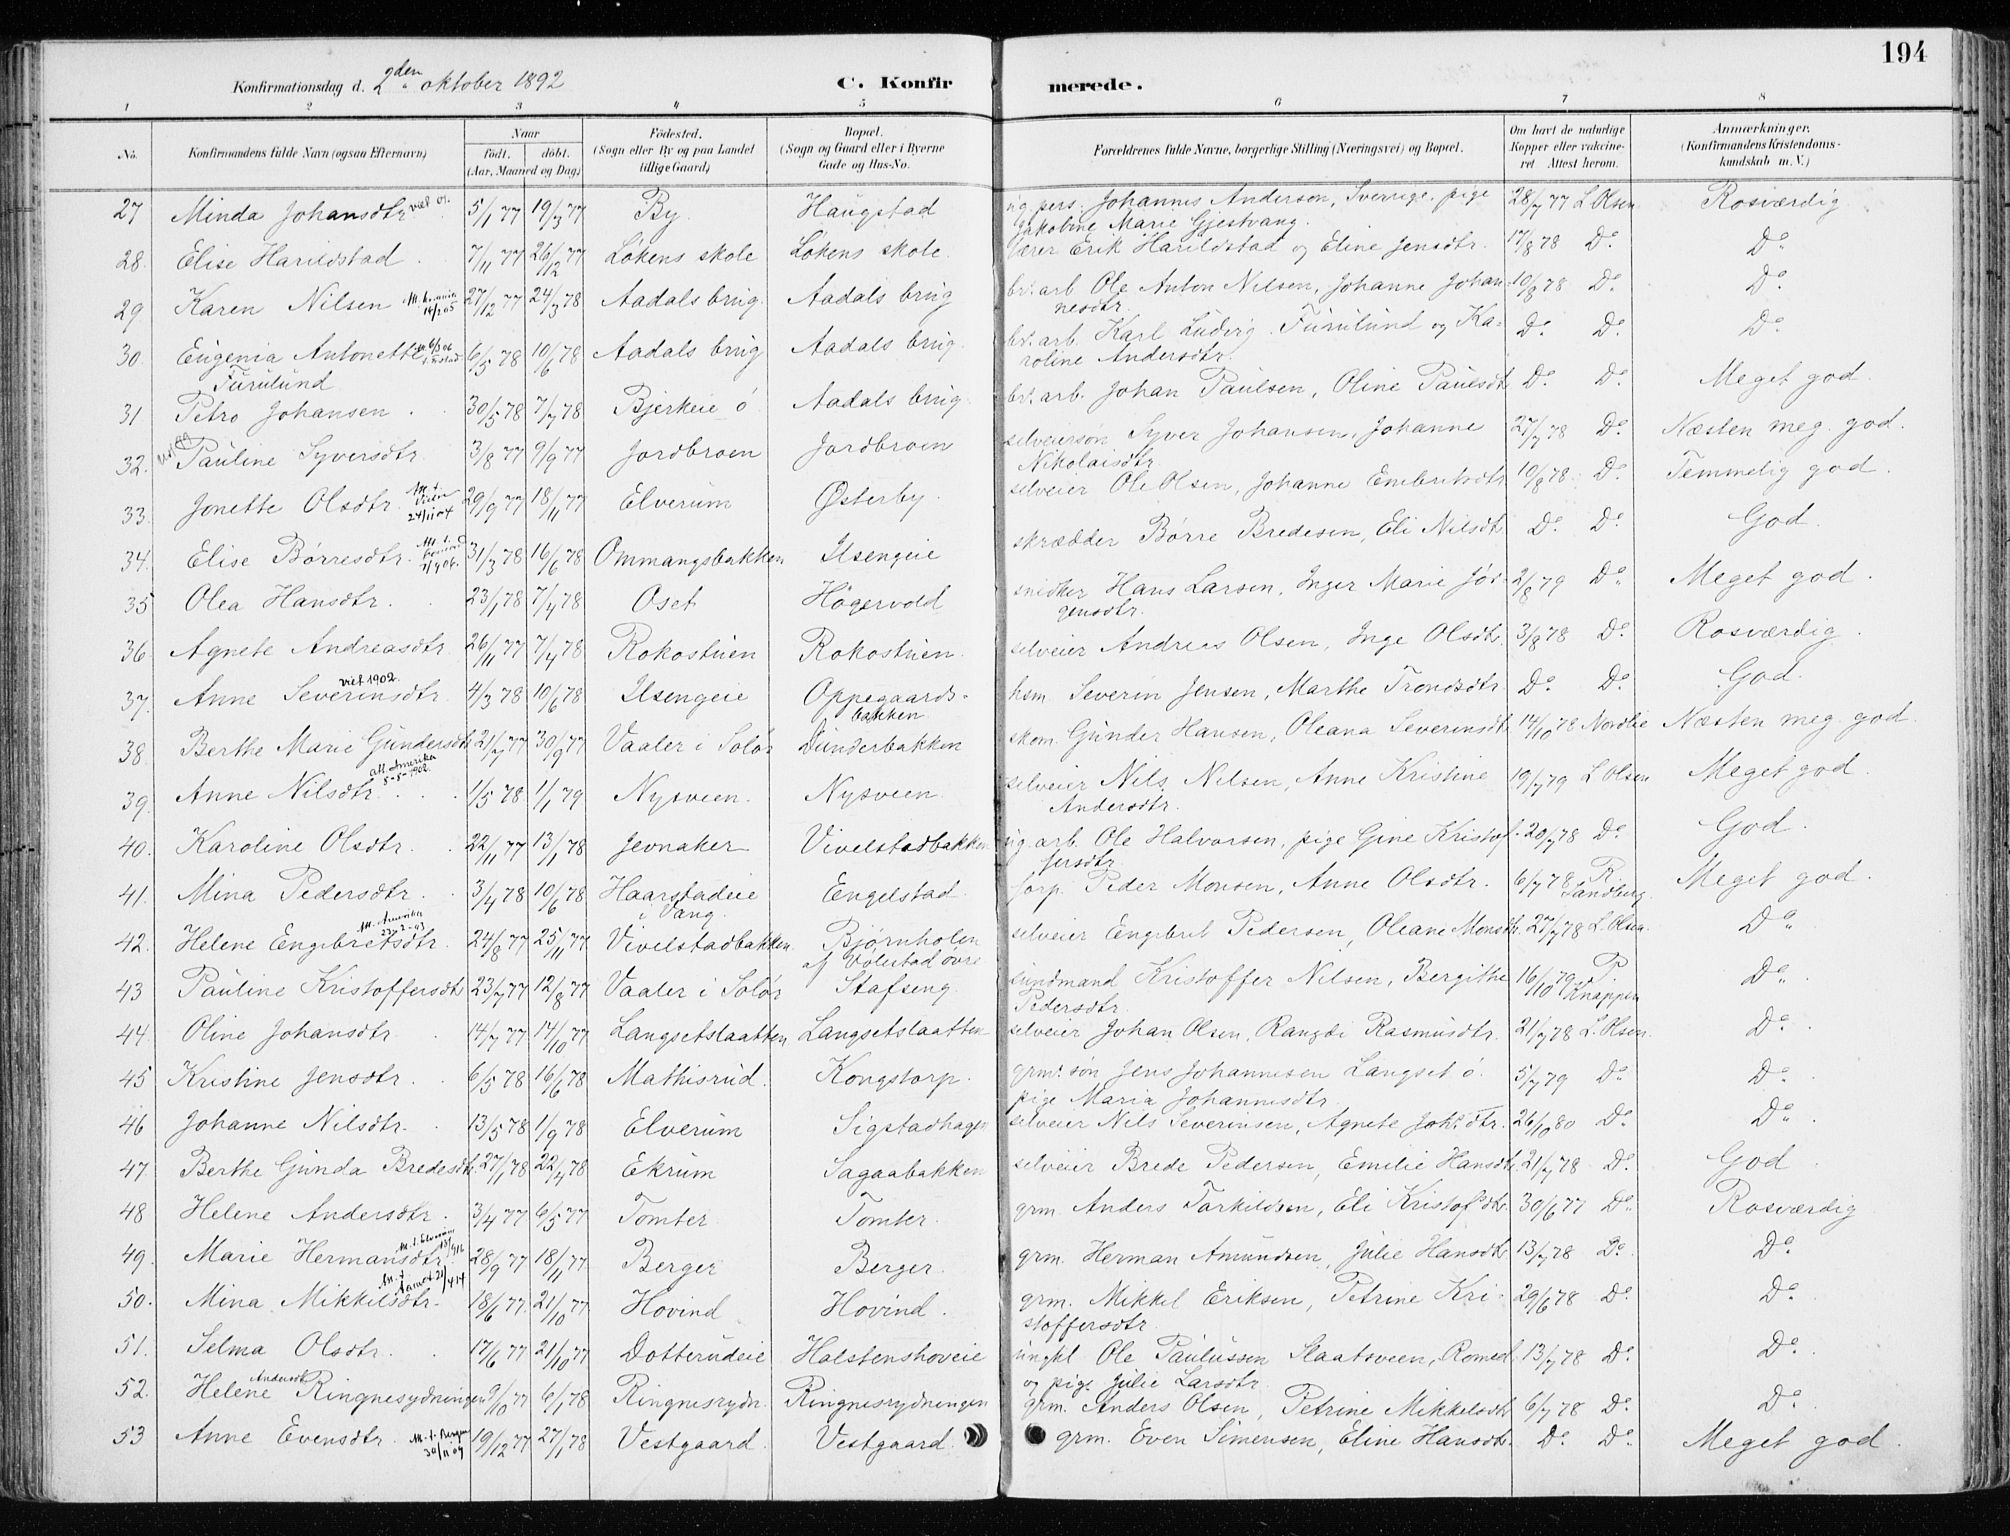 194
Konfirmationsdag d. 2den oktober 1892 C. Konfir merede.
1 2 3 4 5 6 7 8
No. Konfirmandens fulde Navn (ogsaa Efternavn) Naar født. døbt. (Aar, Maaned og Dag) Fødested. (Sogn eller By og paa Landet tillige Gaard) Bopæl. (Sogn og Gaard eller i Byerne Gade og Hus-No. Forældrenes fulde Navne, borgerlige Stilling (Næringsvei) og Bopæl. Om havt de naturlige Kopper eller vakcineret Attest herom. Anmærkninger. (Konfirmandens Kristendomskundskab m. V.)
27 Minda Johansdtr 5/1 77 19/3 77 By Haugstad ug. pers. Johannes Anderson, Sverrige. pige 28/7 77 L Olsen Rosværdig
Jakobine Marie Gjestvang.
28. Elise Harildstad 7/11 77 26/12 77 Løkens skole Løkens skole. lærer Erik Harildstad og Eline Jensdtr. 17/8 78 Do Do
29 Karen Nilsen 27/12 77 24/3 78 Aadals brug. Aadals brug br. arb. Ole Anton Nilsen, Johanne Johan- 10/8 78 Do. Do
nesdtr.
30. Eugenia Antonette 6/5 78 10/6 78 Aadals brug Aadals brug. br. arb. Karl Ludvig Furulund og Ka- Do Do. Do
Furulund roline Andersdtr.
31 Petro Johansen. 30/5 78 7/7 78 Bjerkeie ö Aadals brug br. arb. Johan Paulsen, Oline Paulsdt Do Do. Meget god.
32. Pauline Syversdtr. 3/8 77 9/9 77 Jordbroen Jordbroen selveiersøn Syver Johansen, Johanne 27/7 78 Do. Næsten meg. god.
Nikolaisdtr
33. Jonette Olsdtr. 24/11 04 29/9 77 18/11 77 Elverum Østerby. selveier Ole Olsen, Johanne Embritsdtr 10/8 78. Do. Temmelig god.
34. Elise Børresdtr. 31/3 78 16/6 78 Ommangsbakken Ilsengeie skrædder Børre Bredesen, Eli Nilsdtr Do Do. God.
35 Olea Hansdtr. 23/1 78 7/4 78 Oset Högervold snidker Hans Larsen, Inger Marie Jör- 2/8 79 Do. Meget god.
gensdtr.
36. Agnete Andreasdtr 26/11 77 7/4 78 Rokostuen Rokostuen. selveier Andreas Olsen, Inge Olsdtr. 3/8 78 Do. Rosværdig.
37. Anne Severinsdtr. viet 1902. 4/3 78 10/6 78 Ilsengeie Oppegaards- hsm. Severin Jensen, Marthe Trondsdtr. Do Do. God.
bakken
38. Berthe Marie Gundersdtr 21/7 77 30/9 77 Vaaler i Solør Dunderbakken skom. Gunder Hansen, Oleana Severinsdt 14/10 78 Nordlie Næsten meg. god.
39. Anne Nilsdtr. att. Amerika 5-5-1902. 1/5 78 1/1 79 Nysveen. Nysveen. selveier Nils Nilsen, Anne Kristine 19/7 79 L Olsen Meget god.
Andersdtr.
40. Karoline Olsdtr. 22/11 77 13/1 78 Jevnaker Vivelstadbakken ug. arb. Ole Halvorsen, pige Gine Kristof- 20/7 78 Do. God.
fersdtr.
41. Mina Pedersdtr. 3/4 78 10/6 78 Haarstadeie Engelstad forp. Peder Monsen, Anne Olsdtr. 6/7 78 R. Sandberg Meget god.
i Vang.
42. Helene Engebretsdtr. 24/8 77 25/11 77 Vivelstadbakken. Bjørnholen selveier Engebret Pedersen, Oleane Monsdtr. 27/7 78 L. Olsen Do
af Volestad övre
43 Pauline Kristoffersdt 23/7 77 12/8 77 Vaaler i Solør Stafseng. sundmand Kristoffer Nilsen, Bergithe 16/10 79 P. Knappen Do.
Pedersdtr.
44. Oline Johansdtr. 14/7 77 14/10 77 Langsetslaatten Langsetslaatten selveier Johan Olsen, Rangdi Rasmusdtr. 21/7 78 L. Olsen. Do.
45 Kristine Jensdtr. 6/5 78 16/6 78 Mathisrud. Kongstorp. grm. søn Jens Johannesen Langset ö. 5/7 79 Do Do.
pige Maria Johannesdtr.
46 Johanne Nilsdtr. 13/5 78 1/9 78 Elverum Sigstadhagen selveier Nils Severinsen, Agnete Joh. dtr. 26/10 80 Do. Do.
47. Berthe Gunda Bredesdtr. 27/1 78 22/4 78 Ekrum Sagaabakken selveier Brede Pedersen, Emilie Hansdtr. 21/7 78 Do. God.
48 Helene Andersdtr. 3/4 77 6/5 77 Tomter. Tomter. grm. Anders Torkildsen, Eli Kristof. dtr. 30/6 77 Do. Rosværdig
49. Marie Hermansdtr. 28/9 77 18/11 77 Berger Berger. grm. Herman Amundsen, Julie Hansdtr. 13/7 78 Do. Do.
50. Mina Mikkelsdtr. 18/6 77. 21/10 77 Hovind Hovind. grm. Mikkel Eriksen, Petrine Kri- 29/6 78 Do. Do.
stoffersdtr.
51. Selma Olsdtr. 17/6 77 21/10 77 Dotterudeie Halstenshoveie ungkl. Ole Paulussen Slaatsveen, Romed. 13/7 78 Do. Do.
og pige Julie Larsdtr.
52. Helene Andersdt. Ringnesrydningen 9/10 77 6/1 78 Ringnesrydn. Ringnesrydningen grm. Anders Olsen, Petrine Mikkelsdtr 6/7 78 Do. Do.
53 Anne Evensdtr. 30/11 09 19/12 77 27/1 78 Vestgaard. Vestgaard. grm. Even Simensen, Eline Hansdtr. Do. Do. Meget god.